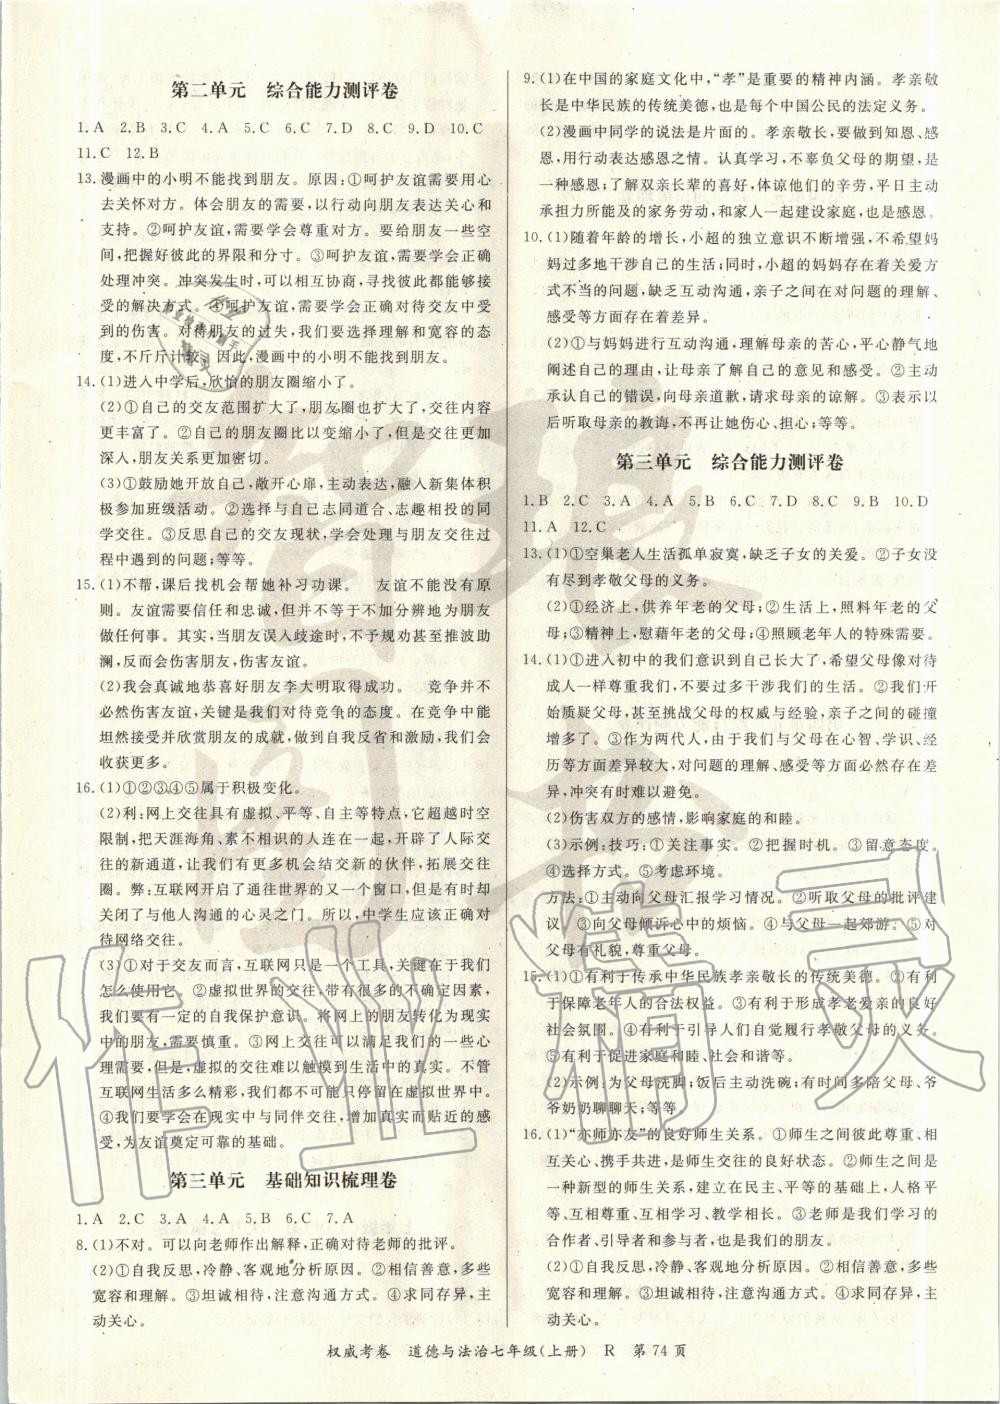 第二单元 综合能力测评卷
1.A 2.B 3.C 4.A 5.C 6.C 7.D 8.C 9.D 10.C
11.C 12.B
13.漫画中的小明不能找到朋友。原因:①呵护友谊需要用心
去关怀对方。体会朋友的需要,以行动向朋友表达关心和
支持。②呵护友谊,需要学会尊重对方。要给朋友一些空
间,把握好彼此的界限和分寸。③呵护友谊,需要学会正确
处理冲突。冲突发生时,可以相互协商,寻找彼此都能够接
受的解决方式。④呵护友谊,需要学会正确对待交友中受
到的伤害。对待朋友的过失,我们要选择理解和宽容的态
度,不斤斤计较。因此,漫画中的小明不能找到朋友。
14.(1)进入中学后,欣怡的朋友圈缩小了。
(2)①自己的交友范围扩大了,朋友圈也扩大了,交往内容
更丰富了。②自己的朋友圈比以变缩小了,但是交往更加
深入,朋友关系更加密切。
(3)①鼓励她开放自己,敞开心扉,主动表达,融入新集体积
极参加班级活动。②选择与自己志同道合、志趣相投的同
学交往。③反思自己的交友现状,学会处理与朋友交往过
程中遇到的问题;等等。
15.(1)不帮,课后找机会帮她补习功课。 友谊不能没有原
则。友谊需要信任和忠诚,但并不等于不加分辨地为朋友
做任何事。其实,当朋友误入歧途时,不予规劝甚至推波助
澜,反而会伤害朋友,伤害友谊。
(2)我会真诚地恭喜好朋友李大明取得成功。 竞争并不
必然伤害友谊,关键是我们对待竞争的态度。在竞争中能
坦然接受并欣赏朋友的成就,做到自我反省和激励,我们会
收获更多。
16.(1)①②③④⑤属于积极变化。
(2)利:网上交往具有虚拟、平等、自主等特点,它超越时空
限制,把天涯海角、素不相识的人连在一起,开辟了人际交
往的新通道,让我们有更多机会结交新的伙伴,拓展交往
圈。弊:互联网开启了通往世界的又一个窗口,但是有时却
关闭了与他人沟通的心灵之门。所以,中学生应该正确对
待网络交往。
(3)①对于交友而言,互联网只是一个工具,关键在于我们
怎么使用它。②虚拟世界的交往,带有很多的不确定因素,
我们要有一定的自我保护意识。将网上的朋友转化为现实
中的朋友,需要慎重。③网上交往可以满足我们的一些心
理需要,但是,虚拟的交往难以触摸到生活中的真实。不管
互联网生活多么精彩,我们都不可能只停留在虚拟世界中。
④我们要学会在现实中与同伴交往,增加真实而贴近的感
受,为友谊奠定可靠的基础。
第三单元 基础知识梳理卷
1.A 2.C 3.A 4.A 5.B 6.C 7.A
8.(1)不对。可以向老师作出解释,正确对待老师的批评。
(2)①自我反思,冷静、客观地分析原因。②相信善意,多些
宽容和理解。③坦诚相待,注意沟通方式。④求同存异,主
动关心。
9.(1)在中国的家庭文化中,“孝”是重要的精神内涵。孝亲敬
长是中华民族的传统美德,也是每个中国公民的法定义务。
(2)漫画中同学的说法是片面的。孝亲敬长,要做到知恩、感
恩,用行动表达感恩之情。认真学习,不辜负父母的期望,是
一种感恩;了解双亲长辈的喜好,体谅他们的辛劳,平日主动
承担力所能及的家务劳动,和家人一起建设家庭,也是感恩。
10.(1)随着年龄的增长,小超的独立意识不断增强,不希望妈
妈过多地干涉自己的生活;同时,小超的妈妈存在着关爱方
式不当的问题,缺乏互动沟通,亲子之间在对问题的理解、
感受等方面存在着差异。
(2)①与妈妈进行互动沟通,理解母亲的苦心,平心静气地
阐述自己的理由,让母亲了解自己的意见和感受。②主动
承认自己的错误,向母亲道歉,请求母亲的谅解。③表示以
后听取母亲的教诲,不再让她伤心、担心;等等。
第三单元 综合能力测评卷
1.B 2.C 3.A 4.A 5.B 6.C 7.D 8.C 9.B 10.D
11.A 12.C
13.(1)①空巢老人生活孤单寂寞,缺乏子女的关爱。②子女没
有尽到孝敬父母的义务。
(2)①经济上,供养年老的父母;②生活上,照料年老的父
母;③精神上,慰藉年老的父母;④照顾老年人的特殊需要。
14.(1)①进入初中的我们意识到自己长大了,希望父母像对待
成人一样尊重我们,不要过多干涉我们的生活。②我们开
始质疑父母,甚至挑战父母的权威与经验,亲子之间的碰撞
增多了。③作为两代人,由于我们与父母在心智、学识、经
历等方面差异较大,对问题的理解、感受等方面必然存在差
异,冲突有时难以避免。
(2)伤害双方的感情,影响家庭的和睦。
(3)示例:技巧:①关注事实。②把握时机。③留意态度。
④选择方式。⑤考虑环境。
方法:①主动向父母汇报学习情况。②听取父母的批评建
议 ③向父母倾诉心中的烦恼。④与父母一起郊游。⑤对
父母有礼貌,尊重父母。
15.(1)①有利于传承中华民族孝亲敬长的传统美德。②有利
于保障老年人的合法权益。③有利于形成孝老爱亲的良好
社会氛围。④有利于引导人们自觉履行孝敬父母的义务。
⑤有利于促进家庭和睦、社会和谐等。
(2)示例:为父母洗脚;饭后主动洗碗;有时间多陪父母、爷
爷奶奶聊聊天;等等
16.(1)“亦师亦友”的良好师生关系。①师生之间彼此尊重、人格
相互关心、携手共进,是师生交往的良好状态。②师生之间是
一种新型的师生关系,建立在民主平等的基础上,人格平
等、互相尊重、互相学习、教学相长。③老师是我们学习的
合作者、引导者和参与者,也是我们的朋友。
(2)①自我反思,冷静、客观地分析原因。②相信善意,多些
宽容和理解。③坦诚相待,注意沟通方式。④求同存异,主
动关心。
权威考卷 道德与法治七年级(上册) R 第74页
作业精灵